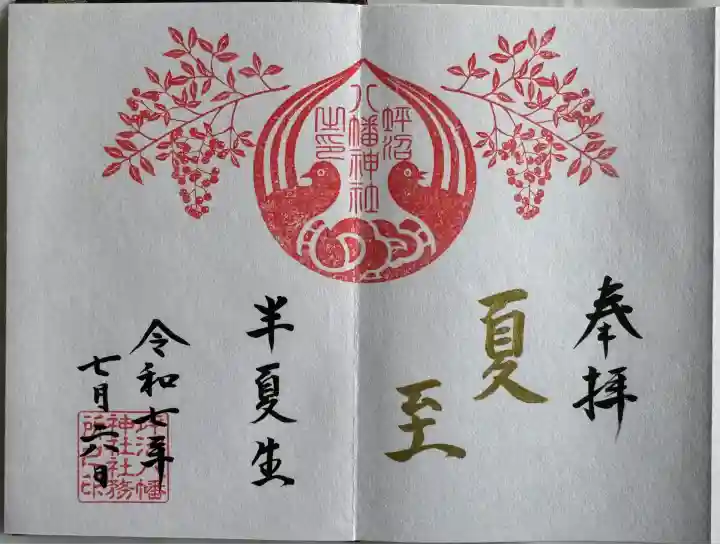 坪沼
八幡神社
之印
奉拝
夏至
半夏生
令和七年
七月六日
坪沼八幡
神社社務
所之印